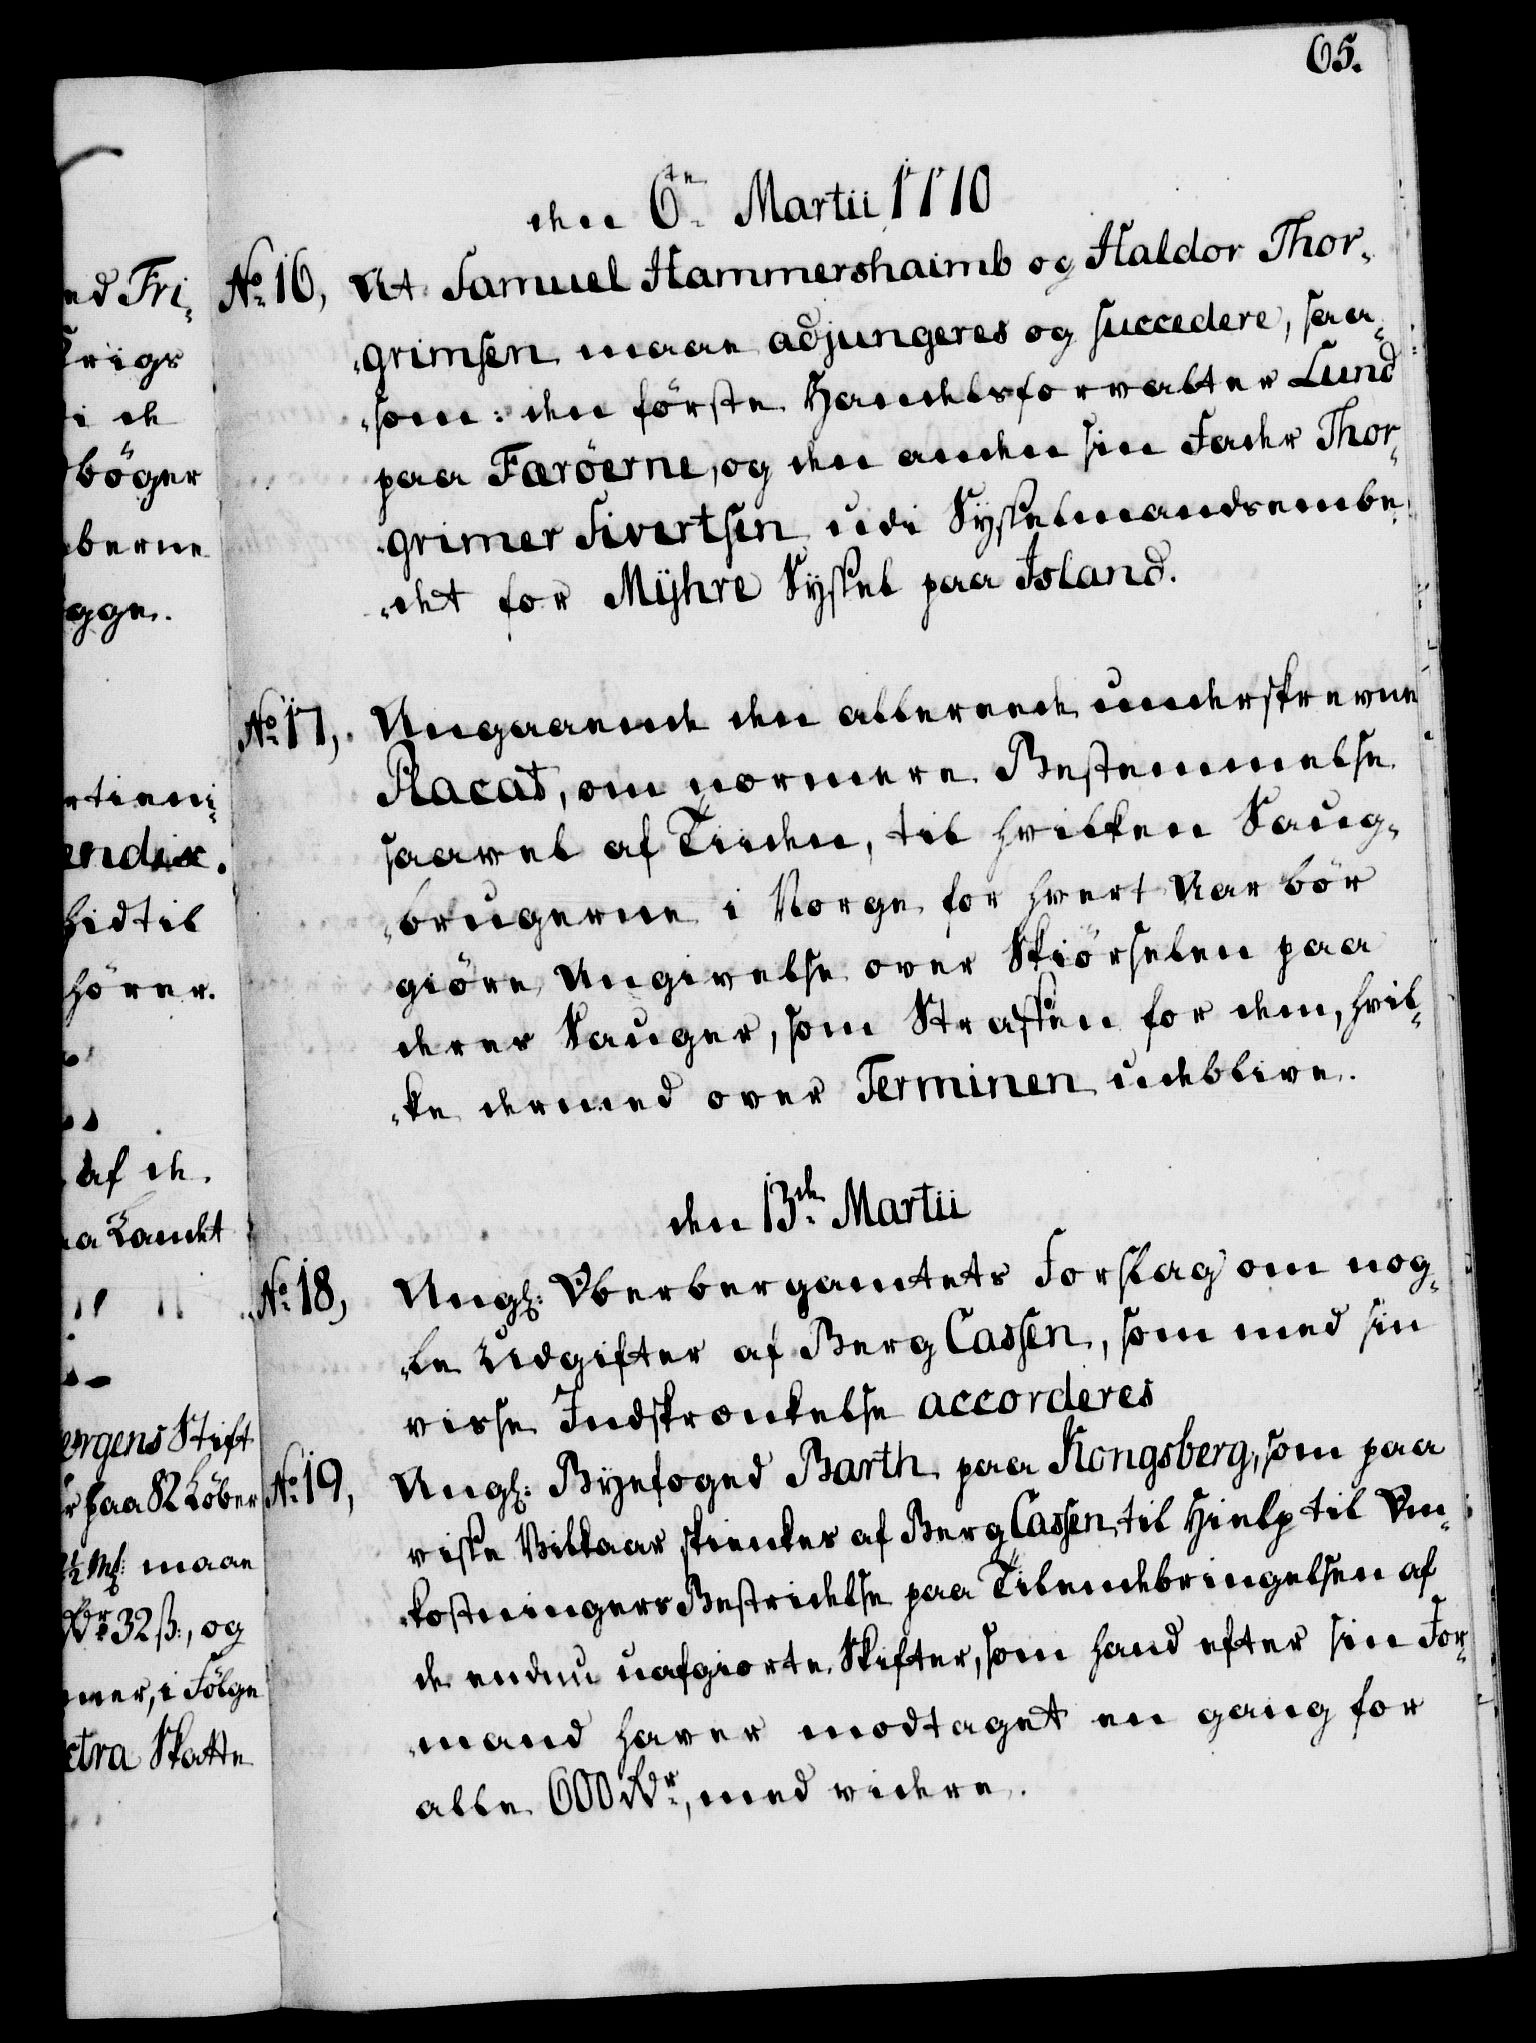 65.
den 6te Martii 1770
No 16, At Samuel Hammershaimb og Haldor Thor-
-grimsen maae adjungeres og succedere, saa-
-som: den förste Handelsforvalter Lund
paa Færöerne, og den anden sin Fader Thor-
-grimer Sivertsen udi Sysselmandsembe-
-det for Mÿhre Syssel paa Island.
No 17, Angaaende den allereede underskrevne
Placat, om nærmere Bestemmelse
saavel af Tiiden, til hvilken Saug-
-brugerne i Norge for hvert Aar bör
giöre Angivelse over Skiörselen paa
deres Sauger, som Straffen for dem, hvil-
-ke dermed over Terminen udeblive.
den 13de Martii
No 18, Ang: Oberbergamtets Forslag om nog-
-le Udgifter af Berg Cassen, som med sin
visse Indskrænkelse accorderes
No 19, Ang: Byefoged Barth paa Kongsberg, som paa
visse Vilkaar skienkes af Berg Cassen til Hielp til Om-
-kostningers Bestridelse paa Tilendebringelsen af
de endnu uafgiorte Skifter, som hand efter sin For-
-mand haver modtaget en gang for
alle 600 Rdr, med videre.
ed Fri-
Krigs
i de
böger
berne
gge.
rtieni-
endix.
hidtil
hörer.
af de
Landet
ergens Stift
paa 82 Löber
½ Mk: maae
Rdr 32 ß:, og
mer, i Fölge
xtra Skatte